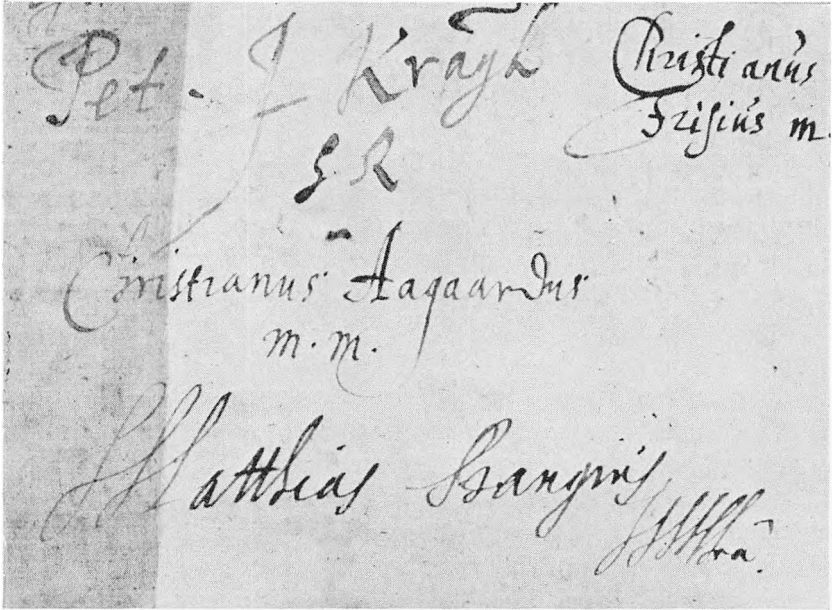 Pet. J Kragh
S. R
Christianus
Frisius m.
Christianus Aagaardus
m. m.
Matthias